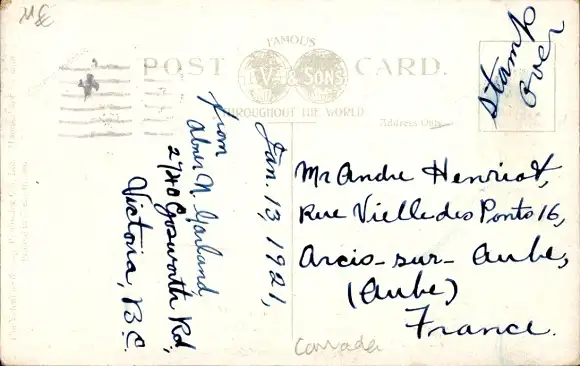 FAMOUS
POST CARD.
V & SONS
THROUGHOUT THE WORLD
Address Only
Stamp
over
from
Abner N. Garland,
2740 Gosworth Rd,
Victoria, B.C.
Jan. 13, 1921,
Mr Andre Henriot,
Rue Vielle des Ponts 16,
Arcis-sur-Aube,
(Aube)
France.
Canada